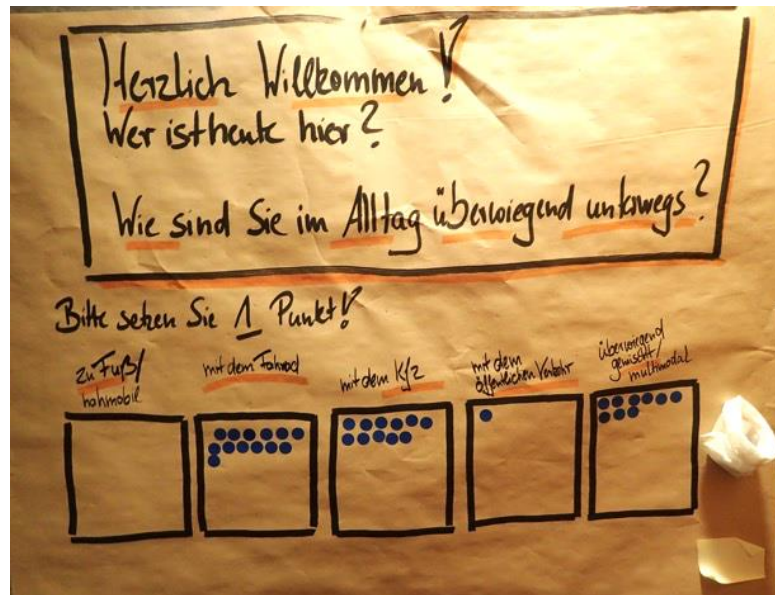 Herzlich Willkommen!
Wer ist heute hier?
Wie sind Sie im Alltag überwiegend unterwegs?
Bitte setzen Sie 1 Punkt!
zu Fuß/
mit dem Fahrrad
mit dem Kfz
mit dem
öffentlichen Verkehr
überwiegend
gemischt/
multimodal